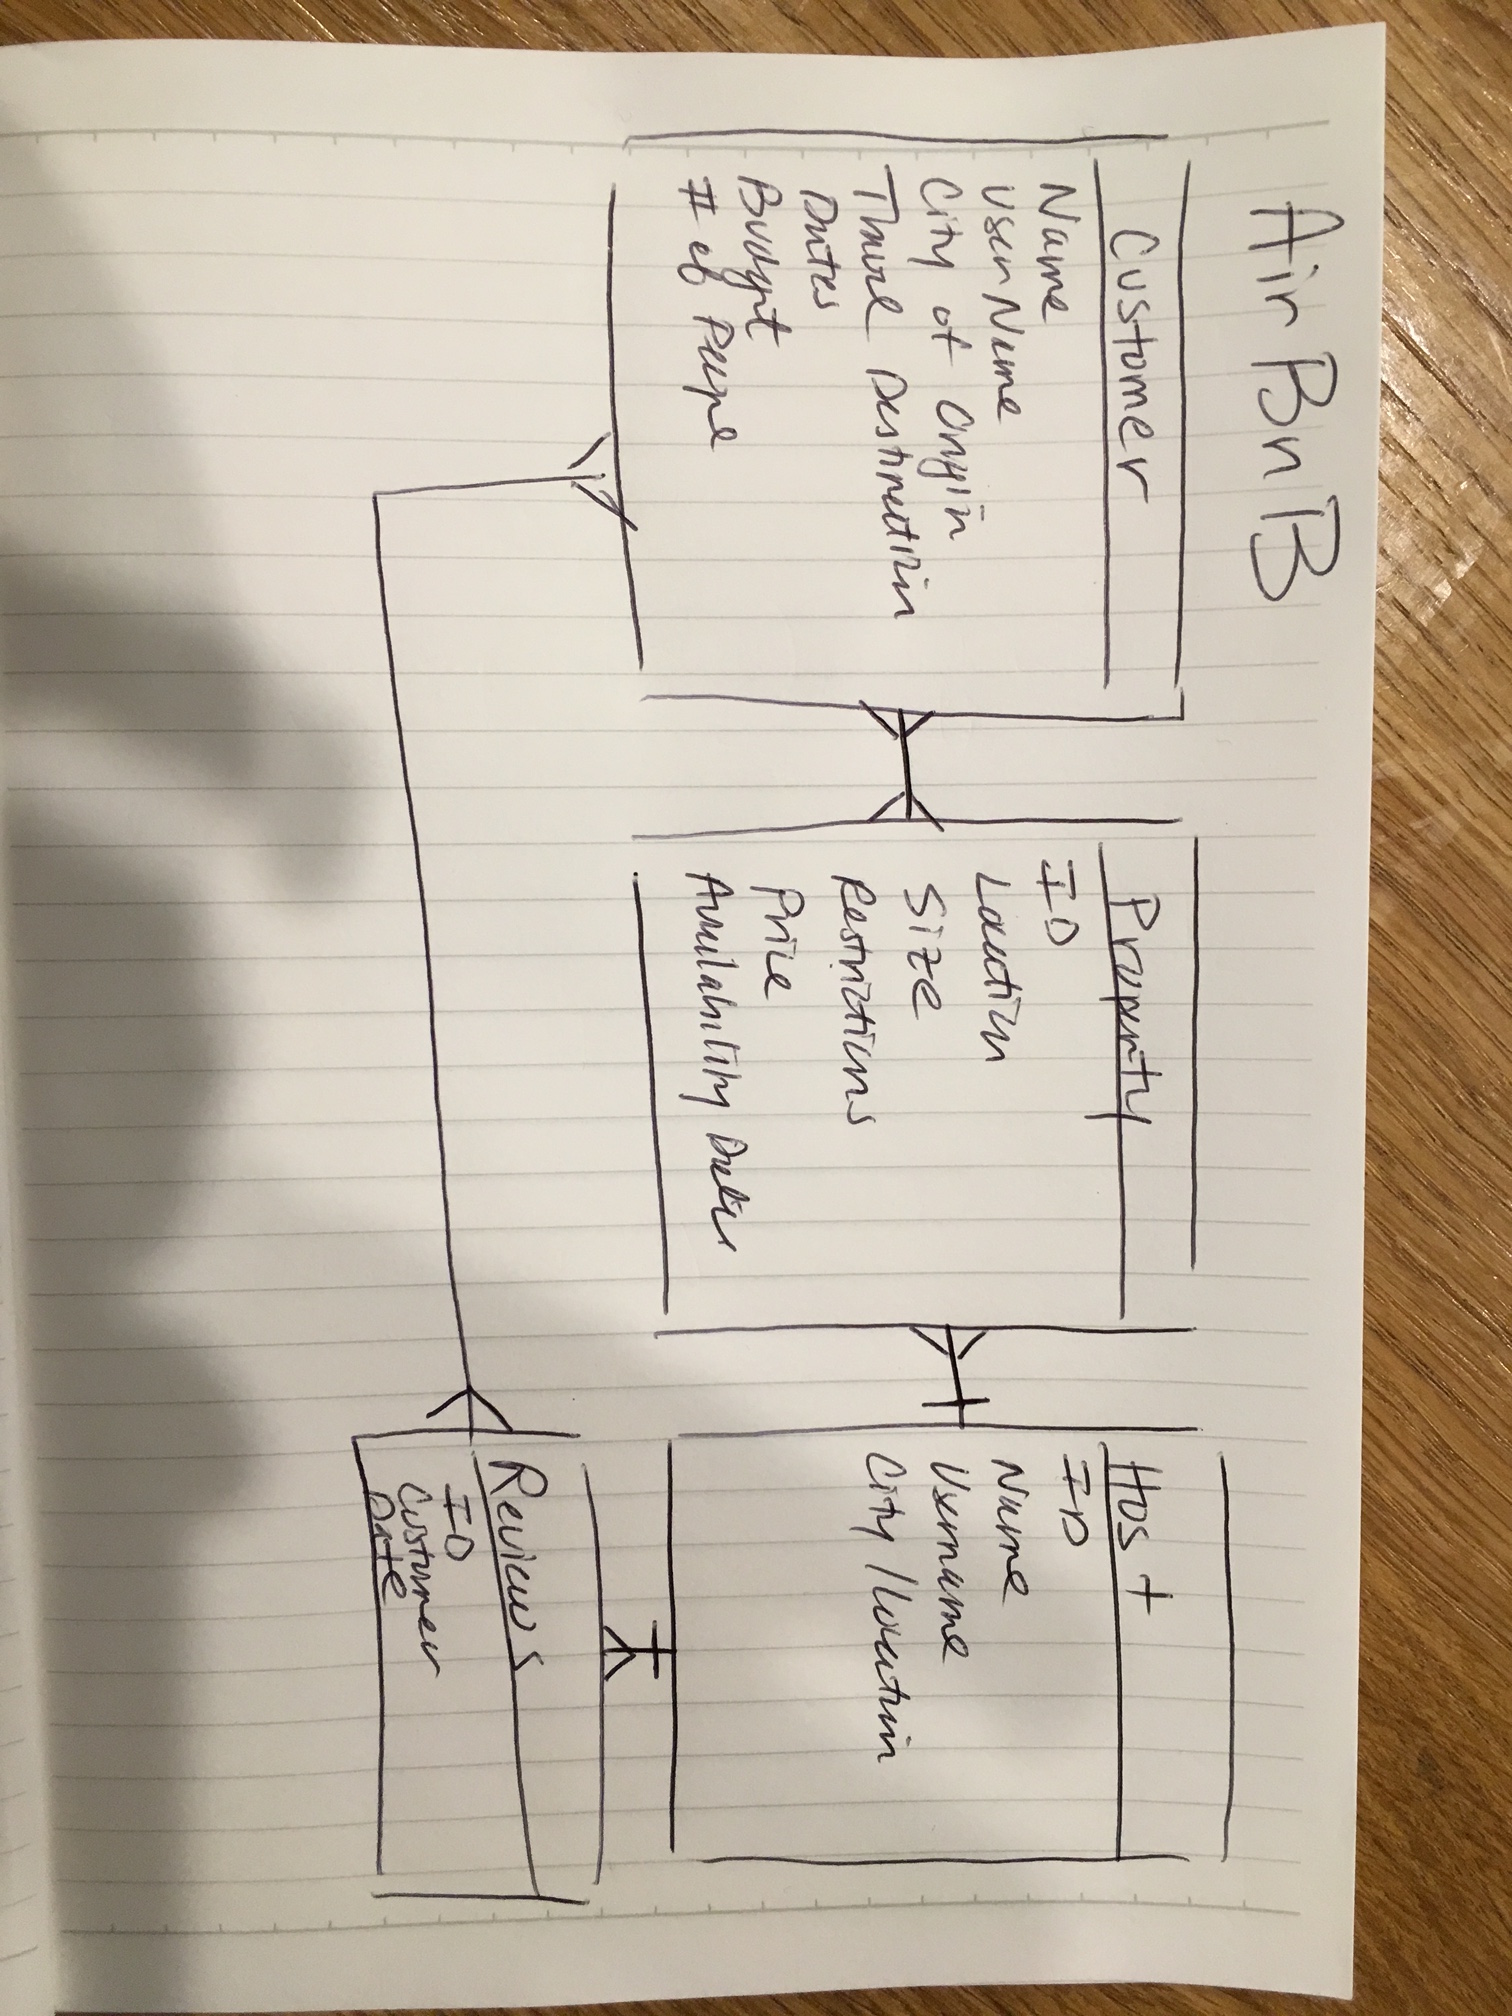 Air BnB
Customer
Name
UserName
City of Origin
Travel Destination
Dates
Budget
# of People
Property
ID
Location
Size
Restrictions
Price
Availability Dates
Host
ID
Name
Username
City/Location
Reviews
ID
Customer
Date